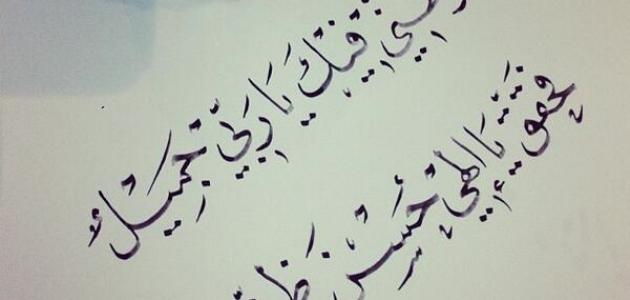 فيك يا ربي جميل
فحقق يا إلهي حسن